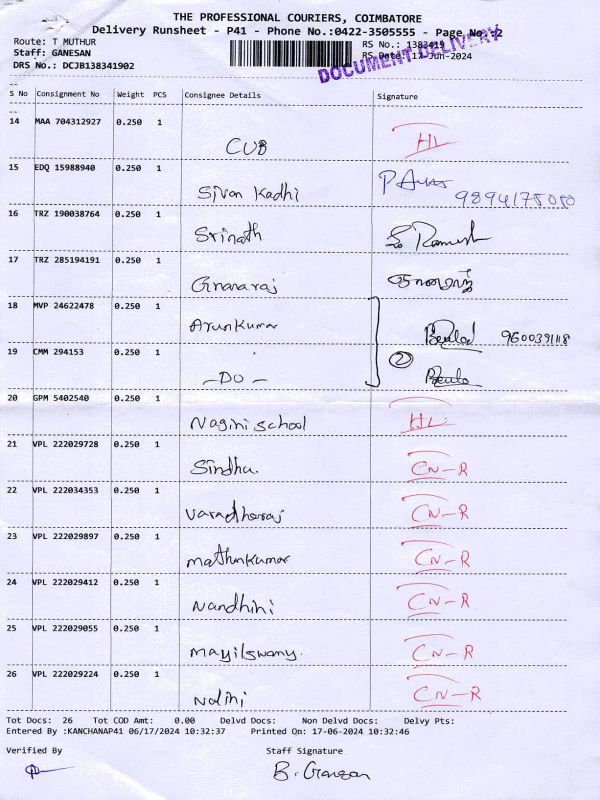 THE PROFESSIONAL COURIERS, COIMBATORE
Delivery Runsheet - P41 - Phone No.:0422-3505555 - Page No.:2
Route: T MUTHUR RS No.: 1383419
Staff: GANESAN RS Date: 17-Jun-2024
DRS No.: DCJB138341902
DOCUMENT DELIVERY
S No Consignment No Weight PCS Consignee Details Signature
14 MAA 704312927 0.250 1
CUB HL
15 EDQ 15988940 0.250 1
Sivan Kadhi 9894175050
16 TRZ 190038764 0.250 1
Srinath Ramesh
17 TRZ 285194191 0.250 1
Gnanaraj
18 MVP 24622478 0.250 1
ArunKumar 960039118
19 CMM 294153 0.250 1
2
- DO -
20 GPM 5402540 0.250 1
Nagini school HL
21 VPL 222029728 0.250 1
Sindhu. CN-R
22 VPL 222034353 0.250 1
varadharaj CN-R
23 VPL 222029897 0.250 1
mathunkumar CN-R
24 VPL 222029412 0.250 1
Nandhini CN-R
25 VPL 222029055 0.250 1
mayilswamy. CN-R
26 VPL 222029224 0.250 1
Nalini CN-R
Tot Docs: 26 Tot COD Amt: 0.00 Delvd Docs: Non Delvd Docs: Delvy Pts:
Entered By :KANCHANAP41 06/17/2024 10:32:37 Printed On: 17-06-2024 10:32:46
Verified By Staff Signature
B. Ganesan